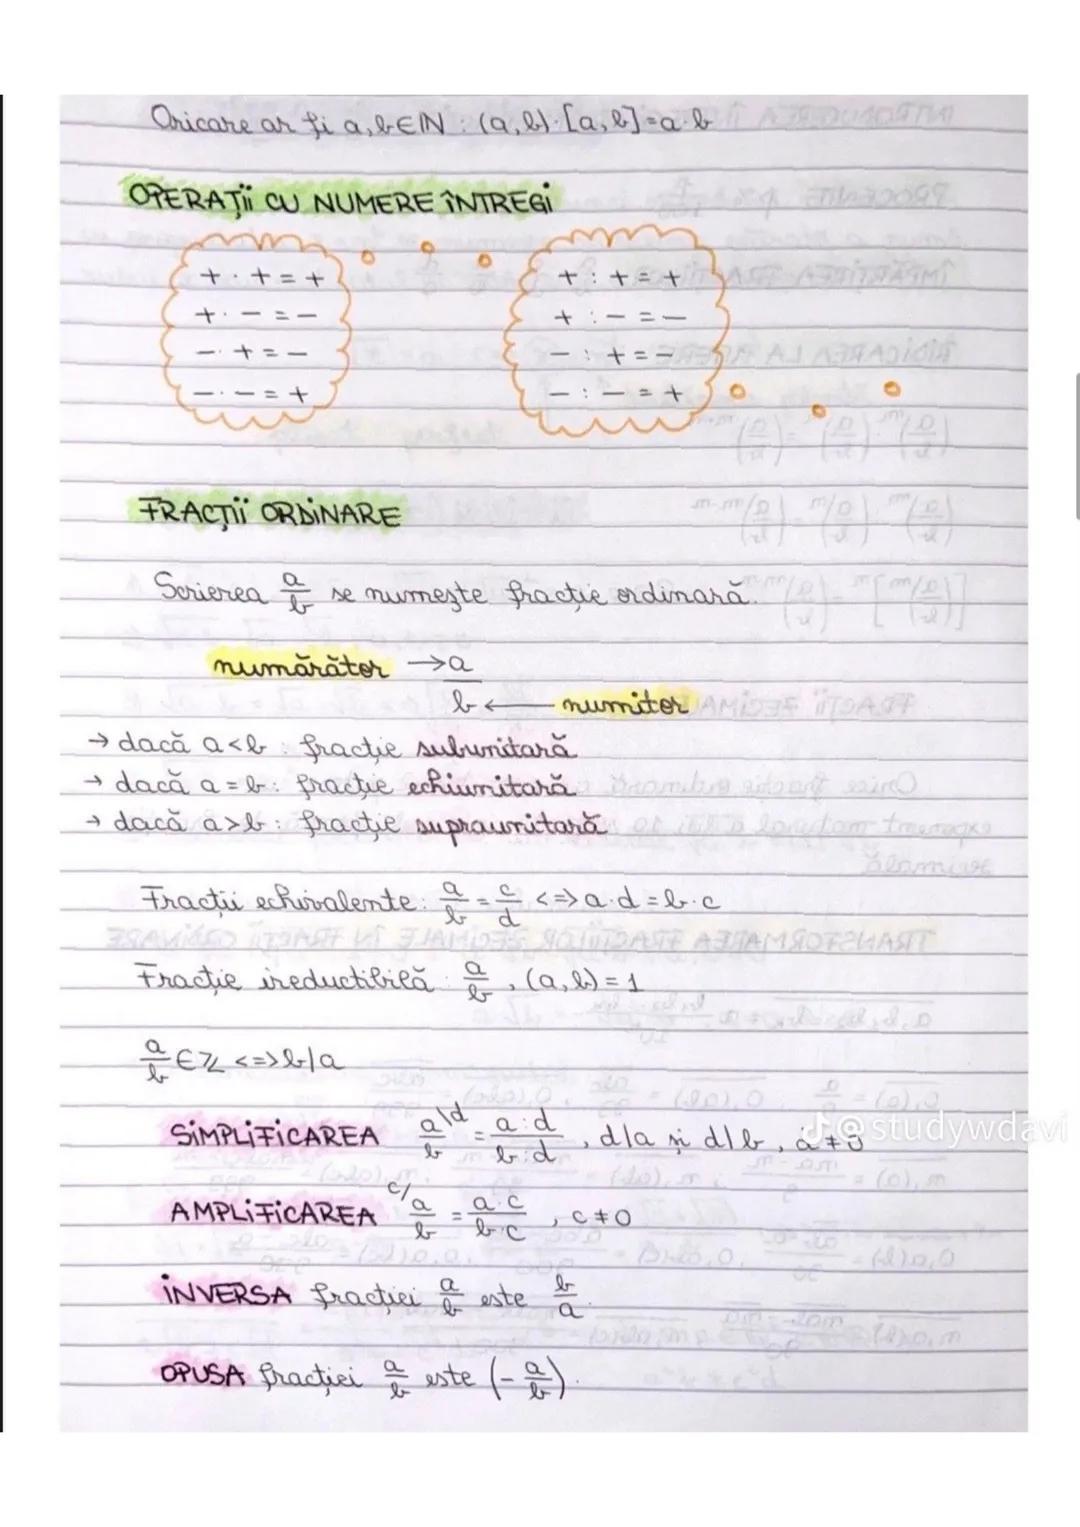 Oricare ar fi a, b ∈ ℕ : (a, b) · [a, b] = a · b
OPERAȚII CU NUMERE ÎNTREGI
+ · + = +
+ · − = −
− · + = −
− · − = +
+ : + = +
+ : − = −
− : + = −
− : − = +
FRACȚII ORDINARE
Scrierea a/b se numește fracție ordinară.
numărător → a
b ← numitor
→ dacă a < b : fracție subunitară
→ dacă a = b : fracție echiunitară
→ dacă a > b : fracție supraunitară
Fracții echivalente: a/b = c/d <=> a · d = b · c
Fracție ireductibilă : a/b , (a, b) = 1
a/b ∈ ℤ <=> b | a
SIMPLIFICAREA a/b \d = a : d / b : d , d | a și d | b , d ≠ 0
AMPLIFICAREA c/ a/b = a · c / b · c , c ≠ 0
INVERSA fracției a/b este b/a.
OPUSA fracției a/b este (− a/b).
@studywdavi